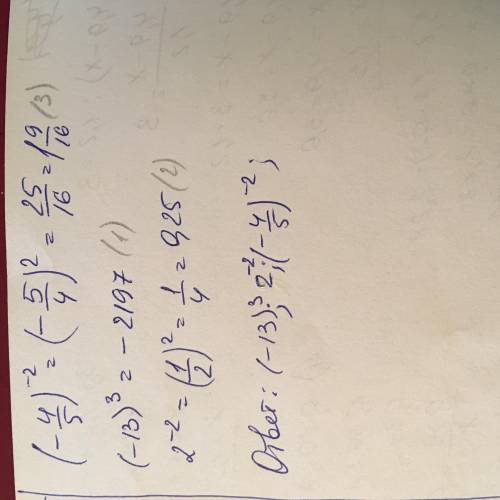 (-4/5)^-2 = (-5/4)^2 = 25/16 = 1 9/16 (3)
(-13)^3 = -2197 (1)
2^-2 = (1/2)^2 = 1/4 = 0,25 (2)
Ответ: (-13)^3; 2^-2; (-4/5)^-2;